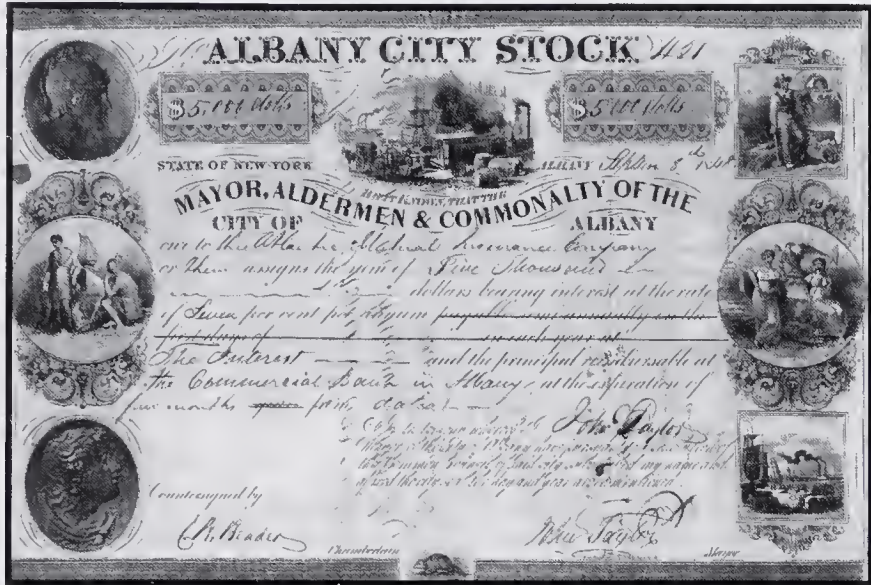 ALBANY CITY STOCK
$5,000 dolls
$5000 dolls
STATE OF NEW-YORK
ALBANY Septem 8th 1848
BE IT KNOWN, THAT THE
MAYOR, ALDERMEN & COMMONALTY OF THE
CITY OF ALBANY
owe to the Atlantic Mutual Insurance Company
or their assigns the sum of Five Thousand
dollars bearing interest at the rate
of Seven per cent per annum payable semi annually on the
first days of in each year at
The Interest and the principal reimbursable at
the Commercial Bank in Albany at the expiration of
months years from date
John Taylor
Mayor of the City of Albany
the Common Council of said City
day and year above mentioned
Countersigned by
C. R. Reader
Chamberlain
John Taylor
Mayor